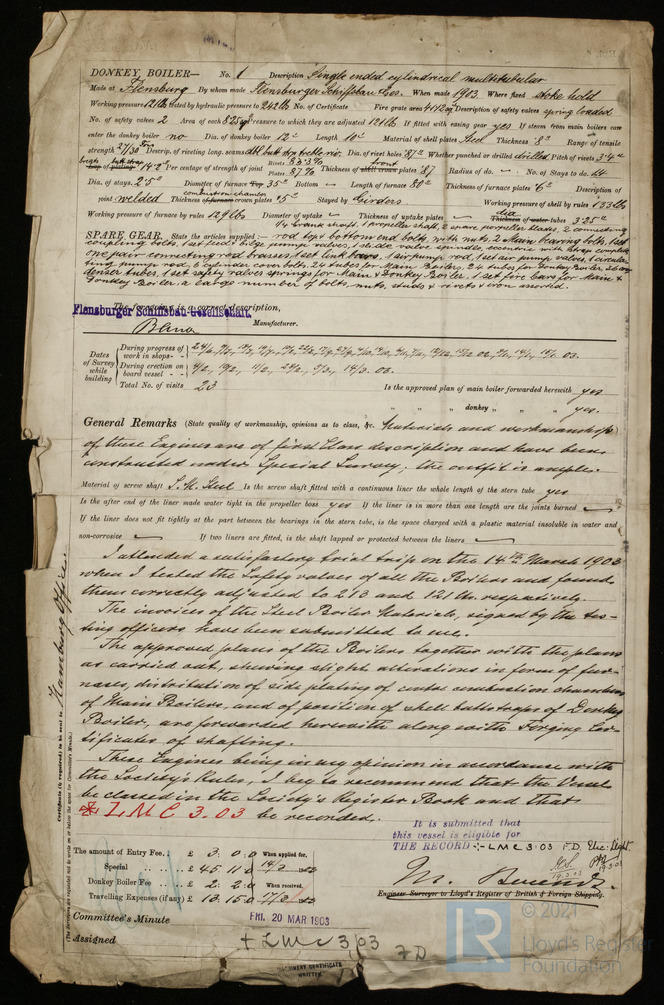 DONKEY BOILER— No. 1 Description Single ended cylindrical multitubular
Made at Flensburg By whom made Flensburger Schiffsbau Ges. When made 1903 Where fixed stoke hold
Working pressure 121 lb tested by hydraulic pressure to 242 lb No. of Certificate Fire grate area Description of safety valves spring loaded
No. of safety valves 2 Area of each to which they are adjusted 121 lb If fitted with easing gear yes If steam from main boilers can
enter the donkey boiler no Dia. of donkey boiler Length Material of shell plates Steel Thickness Range of tensile
strength 27/30 Descrip. of riveting long. seams dbl butt strap treble riv. Dia. of rivet holes Whether punched or drilled drilled Pitch of rivets
Per centage of strength of joint Rivets 83.3% Plates 87% Thickness of crown plates Radius of do. No. of Stays to do. 14
Dia. of stays Diameter of furnace Bottom Length of furnace Thickness of furnace plates Description of
joint welded Thickness of combustion chamber crown plates Stayed by Girders Working pressure of shell by rules 133 lb
Working pressure of furnace by rules 129 lb Diameter of uptake Thickness of uptake plates Thickness of water tubes
SPARE GEAR. State the articles supplied:— crank shaft, 1 propeller shaft, 2 spare propeller blades, 2 connecting
rod top & bottom end bolts with nuts, 2 Main bearing bolts, 1 set
coupling bolts, 1 set feed & bilge pump valves, 1 slide valve spindle,
one pair connecting rod brasses, 1 set link 1 air pump rod, 1 set air pump valves, 1 circula-
ting pump rod, 24 tubes for Main Boilers, 24 tubes for Donkey Boiler, con-
denser tubes, 1 set safety valves springs for Main & Donkey Boiler, 1 set fire bars for Main &
Donkey Boiler, a large number of bolts, nuts, studs & rivets & iron assorted.
The foregoing is a correct description,
Flensburger Schiffsbau-Gesellschaft.
Manufacturer.
Dates of Survey while building
During progress of work in shops - -
During erection on board vessel - - 14/3. 03.
Total No. of visits 23
Is the approved plan of main boiler forwarded herewith yes
" " " donkey " " " yes.
General Remarks (State quality of workmanship, opinions as to class, &c. Materials and workmanship
of these Engines are of first Class description and have been
constructed under Special Survey; the outfit is ample.
Material of screw shaft S.M. Steel Is the screw shaft fitted with a continuous liner the whole length of the stern tube yes
Is the after end of the liner made water tight in the propeller boss yes If the liner is in more than one length are the joints burned
If the liner does not fit tightly at the part between the bearings in the stern tube, is the space charged with a plastic material insoluble in water and
non-corrosive If two liners are fitted, is the shaft lapped or protected between the liners
I attended a satisfactory trial trip on the 14th March 1903
when I tested the Safety valves of all the Boilers and found
them correctly adjusted to 213 and 121 lbs. respectively.
The invoices of the Steel Boiler Materials, signed by the tes-
ting officers have been submitted to me.
The approved plans of the Boilers together with the plans
as carried out, shewing slight alterations in form of fur-
naces, distribution of side plating of central combustion chambers
of Main Boilers, and of position of shell buttstraps of Donkey
Boiler, are forwarded herewith along with Forging Cer-
tificates of shafting.
These Engines being in my opinion in accordance with
the Society's Rules, I beg to recommend that the Vessel
be classed in the Society's Register Book and that
LMC 3.03 be recorded.
It is submitted that
this vessel is eligible for
THE RECORD + LMC 3.03 F.D. Elec. Light
The amount of Entry Fee.. £ 3. 0. 0 When applied for.
Special .. .. £ 45. 11. 0
Donkey Boiler Fee .. £ 2. 2. 0 When received.
Travelling Expenses (if any) £ 13. 15. 0
Engineer Surveyor to Lloyd's Register of British & Foreign Shipping.
Committee's Minute FRI. 20 MAR 1903
Assigned + LMC 3.03 F.D
MACHINERY CERTIFICATE
WRITTEN
Certificate (if required) to be sent to Hamburg Office.
(The Surveyors are requested not to write on or below the space for Committee's Minute.)
© 2021
LR
Lloyd's Register
Foundation